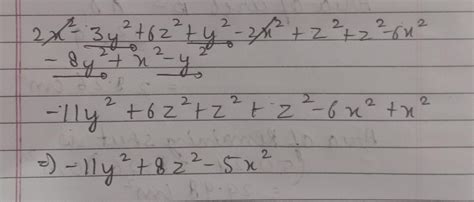 2x² - 3y² + 6z² + y² - 2x² + z² + z² - 6x²
- 8y² + x² - y²
-11y² + 6z² + z² + z² - 6x² + x²
⇒) -11y² + 8z² - 5x²